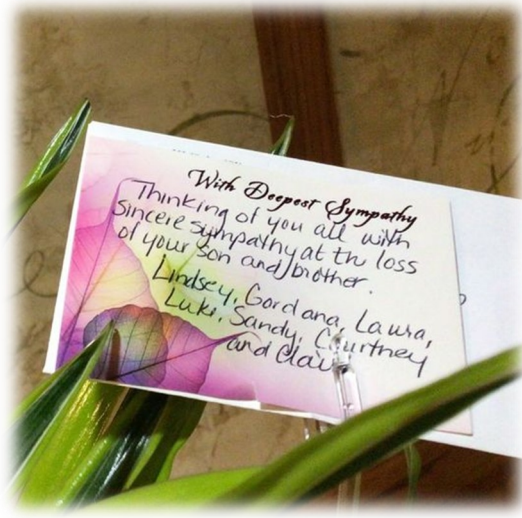 With Deepest Sympathy
Thinking of you all with
sincere sympathy at the loss
of your son and brother.
Lindsey, Gordana, Laura,
Luki, Sandy, Courtney
and